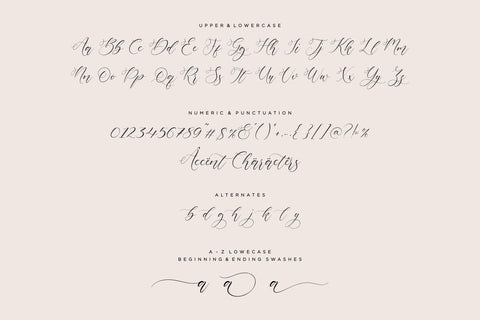 UPPER & LOWERCASE
Aa Bb Cc Dd Ee Ff Gg Hh Ii Jj Kk Ll Mm
Nn Oo Pp Qq Rr Ss Tt Uu Vv Ww Xx Yy Zz
NUMERIC & PUNCTUATION
0123456789"#$%&'()*+,-.{}[]/@?!:%
Àccënt Chäräctêrs
ALTERNATES
b d g h j k l y
A - Z LOWECASE
BEGINNING & ENDING SWASHES
a a a